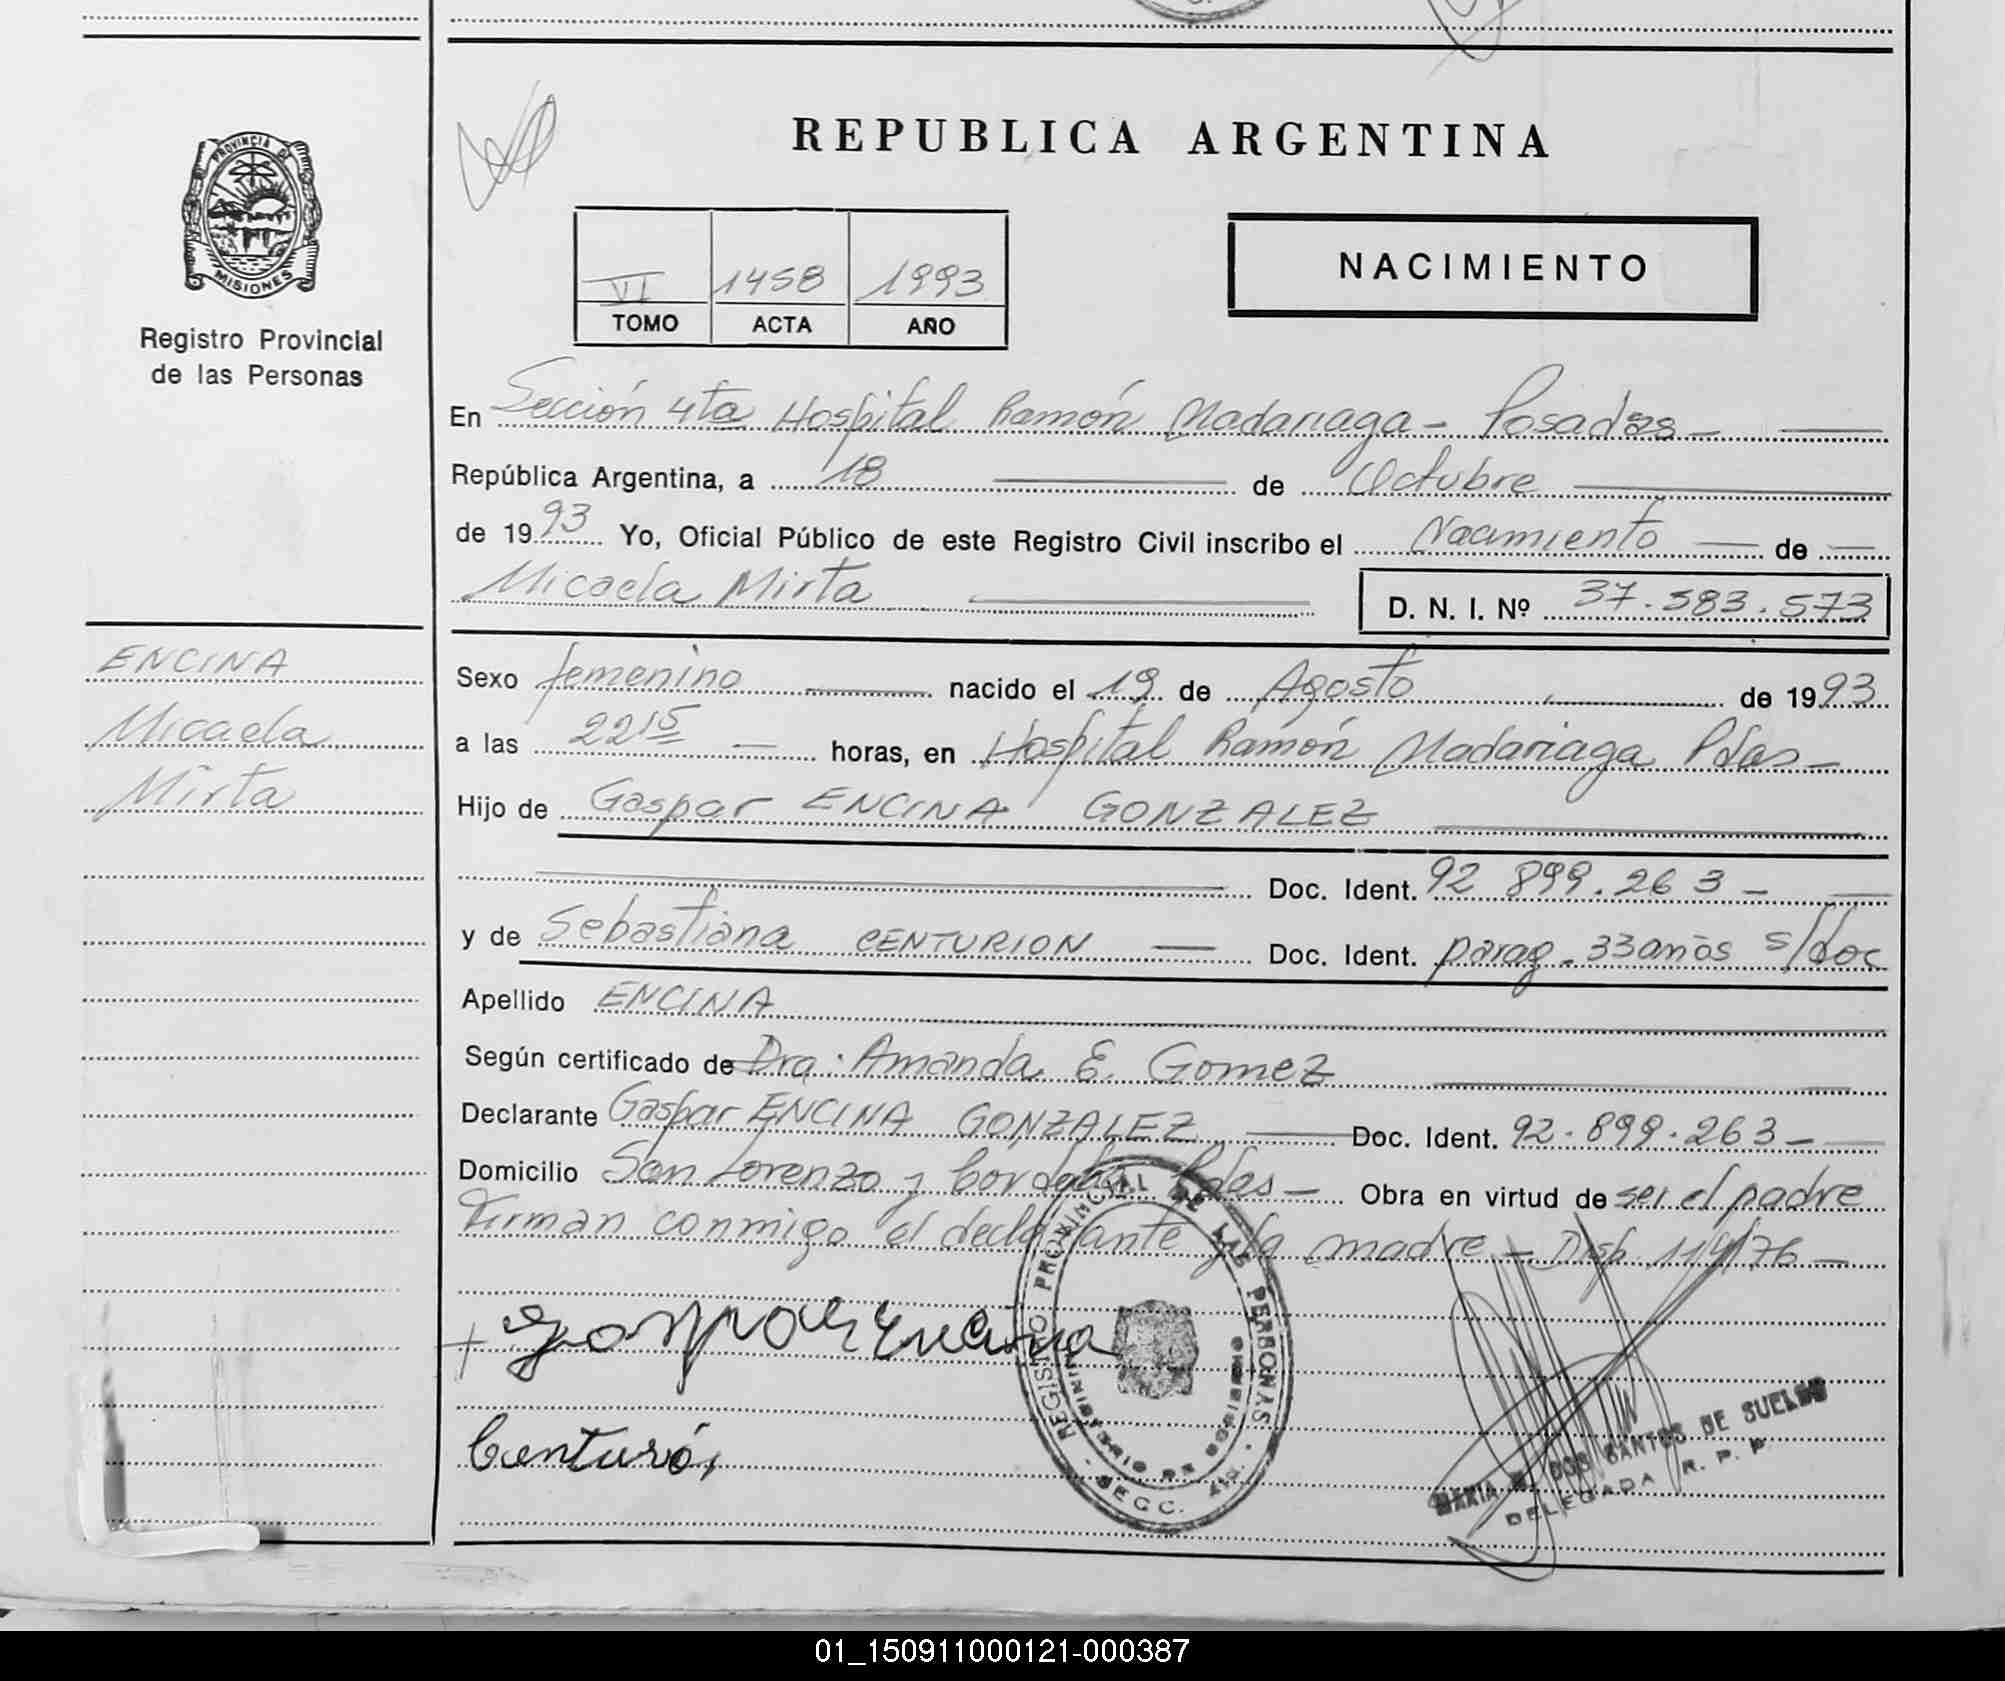 REPUBLICA ARGENTINA
PROVINCIA DE
MISIONES
Registro Provincial
de las Personas
VI 1458 1993
TOMO ACTA AÑO
NACIMIENTO
En Sección 4ta Hospital Ramón Madariaga - Posadas -
República Argentina, a 18 de Octubre
de 1993 Yo, Oficial Público de este Registro Civil inscribo el Nacimiento de
Micaela Mirta D. N. I. Nº 37.583.573
ENCINA
Micaela
Mirta
Sexo femenino nacido el 19 de Agosto de 1993
a las 22 15 horas, en Hospital Ramón Madariaga Pdas -
Hijo de Gaspar ENCINA GONZALEZ
Doc. Ident. 92 899.263 -
y de Sebastiana CENTURION Doc. Ident. parag. 33 años s/doc
Apellido ENCINA
Según certificado de Dra. Amanda E. Gomez
Declarante Gaspar ENCINA GONZALEZ Doc. Ident. 92.899.263 -
Domicilio San Lorenzo y Cordoba Pdas - Obra en virtud de ser el padre
Firman conmigo el declarante y la madre - Disp. 114/76 -
REGISTRO PROVINCIAL DE LAS PERSONAS
MINISTERIO DE GOBIERNO
SECC. 4ta.
Gaspar Encina
Centuró
MARIA DOS SANTOS DE SUELDO
DELEGADA R. P. P.
01_150911000121-000387